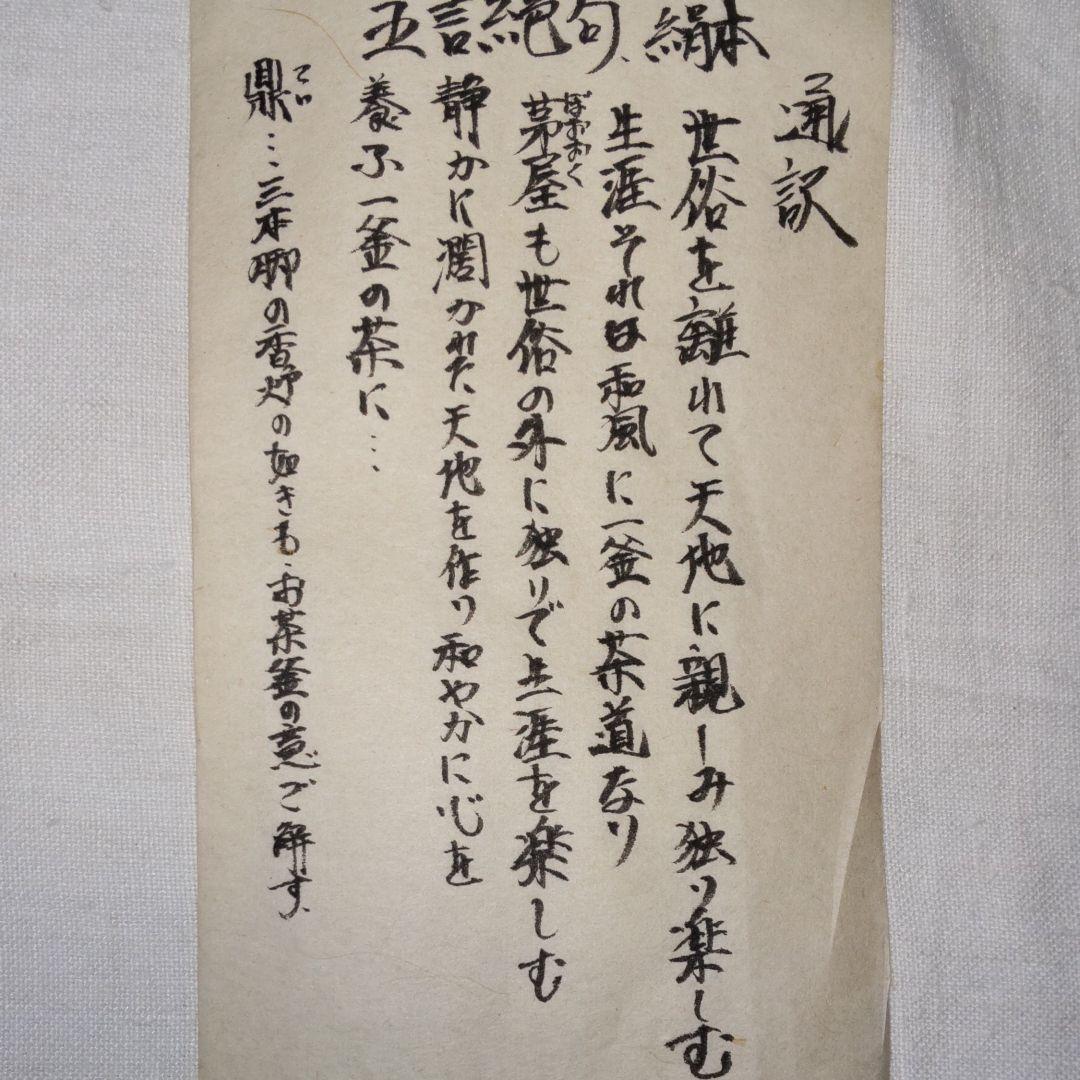 五言絶句、絹本
通訳
世俗を離れて天地に親しみ独り楽しむ
生涯それは和風に一釜の茶道なり
茅屋も世俗の外に独りで生涯を楽しむ
ぼおおく
静かに濶かれた天地を作り和やかに心を
養ふ一釜の茶に…
鼎…三本脚の香炉の如きも、お茶釜の意で解す、
てい